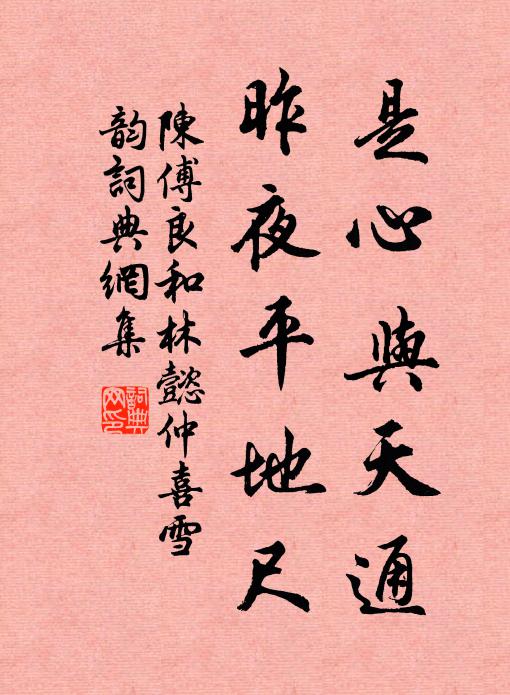 是心與天通
昨夜平地尺
陳傅良和林懿仲喜雪
韵詞典網集
詞典
网印